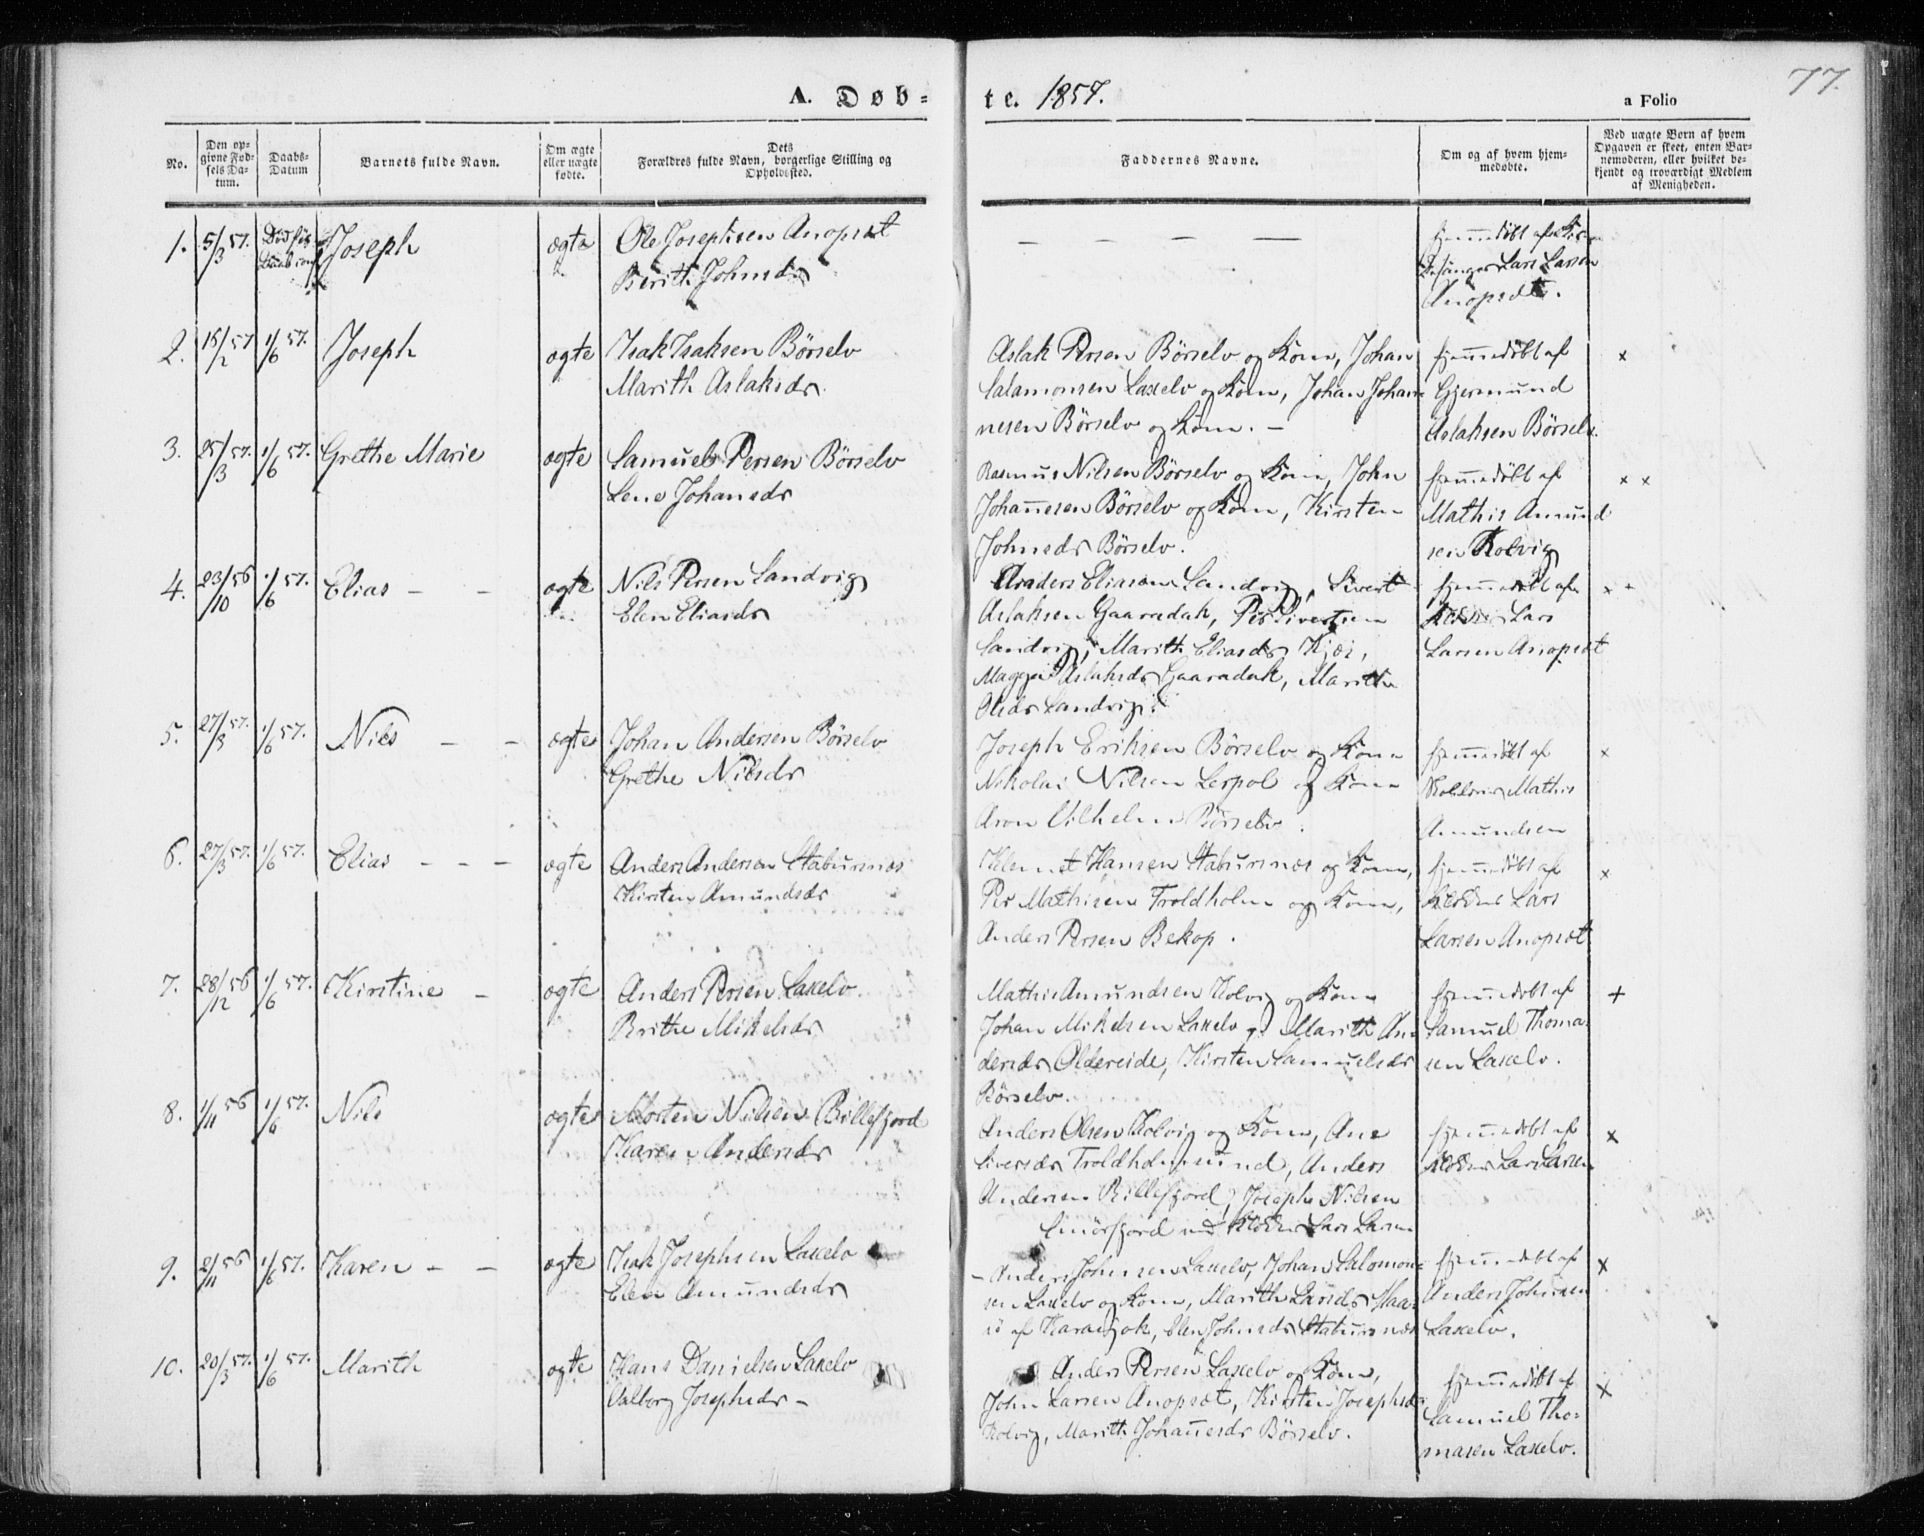 A. Døb=
te. 1857.
77.
a Folio
No.
Den op-
givne Fød-
sels Da-
tum.
Daabs-
Datum
Barnets fulde Navn.
Om ægte
eller uægte
fødte.
Dets
Forældres fulde Navn, borgerlige Stilling og
Opholdssted.
Faddernes Navne.
Om og af hvem hjem-
medøbte.
Ved uægte Børn af hvem
Opgaven er skeet, enten Bar-
nemoderen, eller hvilket be-
kjendt og troværdigt Medlem
af Menigheden.
1. 5/3 57. Død før Joseph ægte Ole Josephsen Anopsæt
Berith Johnsdr
— — — —
hjemmedöbt af
Lars Larsen
Anopsæt.
2. 18/2 57 1/6 57. Joseph ægte Isak Isaksen Börselv
Marith Aslaksdr
Aslak Persen Börselv og Kone, Johan
Salamonsen Laxelv og Kone, Johan Johan-
nesen Börselv og Kone. —
hjemmedöbt af
Gjermund
Aslaksen Börselv.
×
3. 25/3 57. 1/6 57. Grethe Marie ægte Samuel Persen Börselv
Lene Johansdr
Rasmus Nilsen Börselv og Kone, John
Johannesen Börselv og Kone, Kirsten
Johnsdr Börselv.
hjemmedöbt af
Mathis Amund
sen Kolvig
× ×
4. 23/10 56 1/6 57. Elias — — ægte Nils Persen Sandvig
Elen Eliasdr
Anders Eliasen Sandvig, Sivert
Aslaksen Gaaradak, Per Sivertsen
Sandvig, Marith Eliasdr Kjæs,
Magga Aslaksdr Gaaradak, Marith
Olsdr Sandvig.
hjemmedöbt af
Lars
Larsen Anopsæt
×
5. 27/3 57. 1/6 57. Nils — — ægte Johan Andersen Börselv
Grethe Nilsdr
Joseph Eriksen Börselv og Kone
Nikolai Nilsen Lerpol og Kone
Aron Vilhelm Börselv.
hjemmedöbt af
Mathis
Amundsen
×
6. 27/3 57. 1/6 57. Elias — — — ægte Anders Andersen Stabursnæs
Kirsten Amundsdr
Klemet Hansen Stabursnæs og Kone,
Per Mathisen Troldholm og Kone,
Anders Persen Bekop.
hjemmedöbt af
Lars
Larsen Anopsæt
×
7. 28/12 56 1/6 57. Kirstine — ægte Anders Persen Laxelv.
Brithe Mikelsdr
Mathis Amundsen Kolvig og Kone
Johan Mikelsen Laxelv og Marith An-
dersdr Oldereide, Kirsten Samuelsdr
Börselv.
hjemmedöbt af
Samuel Thoma-
sen Laxelv.
+
8. 1/11 56 1/6 57. Nils ægte Morten Nilsen Billefjord
Karen Andersdr
Anders Olsen Kolvig og Kone, Ane
Siversdr Troldholmsund, Anders
Andersen Billefjord, Joseph Nilsen
Smörfjord Lars Larsen
hjemmedöbt af
Lars Larsen
×
9. 2/11 56 1/6 57. Karen — — ægte Isak Josephsen Laxelv
Elen Amundsdr
— Anders Johnsen Laxelv, Johan Salomon-
sen Laxelv og Kone, Marith Larsdr
af Karasjok, Elen Johnsdr Stabursnæs
hjemmedöbt af
Anders Johnsen
Laxelv.
×
10. 20/3 57. 1/6 57. Marith ægte Hans Danielsen Laxelv
Valborg Josephsdr —
Anders Persen Laxelv og Kone,
John Larsen Anopsæt, Kirsten Josephsdr
Kolvig, Marith Johannesdr Börselv.
hjemmedöbt af
Samuel Tho-
masen Laxelv.
×